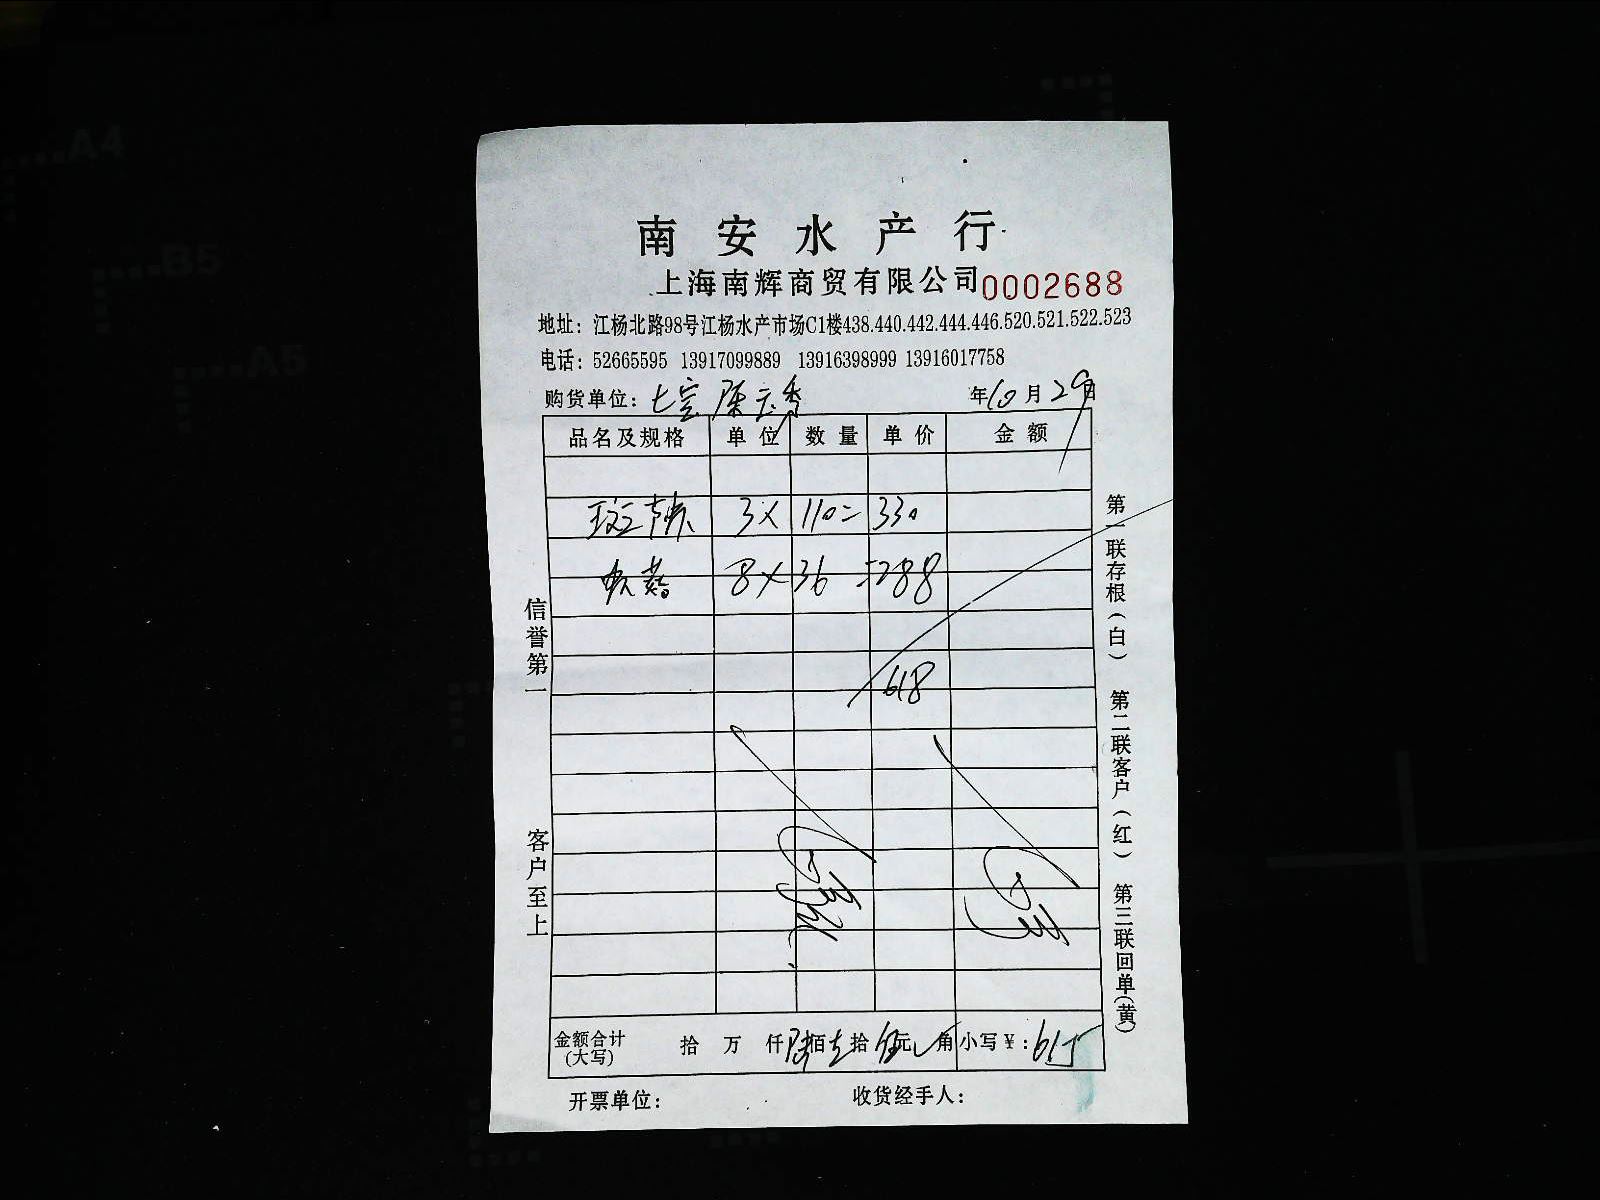 A4
B5
A5
南安水产行
上海南辉商贸有限公司 0002688
地址：江杨北路98号江杨水产市场C1楼438.440.442.444.446.520.521.522.523
电话：52665595 13917099889 13916398999 13916017758
购货单位：七宝陈云香 年10月29日
品名及规格 单位 数量 单价 金额
斑节 3× 110= 330
8× 36 =288
618
信誉第一
客户至上
第一联存根（白） 第二联客户（红） 第三联回单（黄）
金额合计（大写） 拾 万 仟 陆佰壹拾伍元 角 小写¥：615
开票单位： 收货经手人：